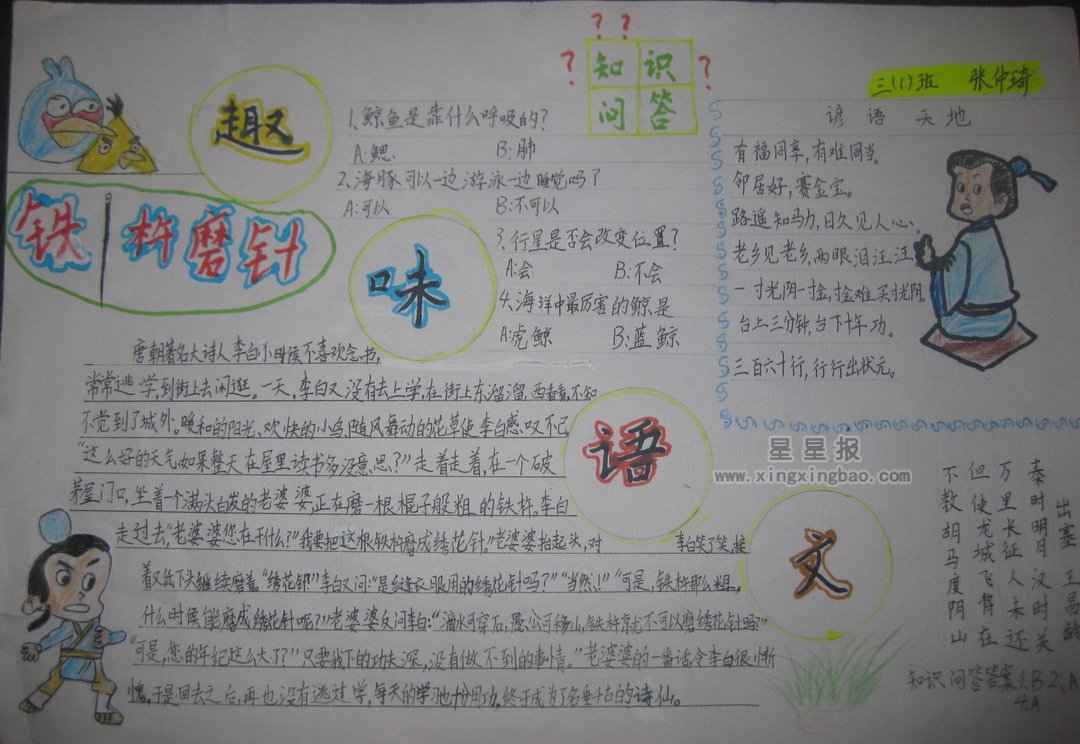 趣
味
语
文
知识
问答
? ? ? ?
三(1)班 张仲琦
1、鲸鱼是靠什么呼吸的?
A:鳃 B:肺
2、海豚可以一边游泳一边睡觉吗?
A:可以 B:不可以
3、行星是否会改变位置?
A:会 B:不会
4、海洋中最厉害的鲸是
A:虎鲸 B:蓝鲸
谚语天地
有福同享,有难同当。
邻居好,赛金宝。
路遥知马力,日久见人心。
老乡见老乡,两眼泪汪汪
一寸光阴一寸金,寸金难买寸光阴
台上三分钟,台下十年功。
三百六十行,行行出状元。
铁杵磨针
唐朝著名大诗人李白小时候不喜欢念书,
常常逃学,到街上去闲逛。一天,李白又没有去上学,在街上东溜溜西看看,不知
不觉到了城外。暖和的阳光、欢快的小鸟、随风舞动的花草使李白感叹不已,
“这么好的天气,如果整天在屋里读书多没意思?”走着走着,在一个破
茅屋门口,坐着一个满头白发的老婆婆,正在磨一根棍子般粗的铁杵。李白
走过去,“老婆婆您在干什么?”“我要把这根铁杵磨成绣花针。”老婆婆抬起头,对李白笑了笑,接
着又低下头继续磨着。“绣花针?”李白又问:“是缝衣服用的绣花针吗?”“当然!”“可是,铁杵那么粗,
什么时候能磨成绣花针呢?”老婆婆反问李白:“滴水可穿石,愚公可移山,铁杵为什么不可以磨绣花针吗?”
“可是,您的年纪这么大了?”“只要我下的功夫深,没有做不到的事情。”老婆婆的一番话,令李白很惭
愧,于是回去之后,再也没有逃过学,每天的学习也十分用功,终于成为了名垂千古的诗仙。
星星报
www.xingxingbao.com
出塞 王昌龄
秦时明月汉时关
万里长征人未还
但使龙城飞将在
不教胡马度阴山
知识问答答案:1、B 2、A
4、A